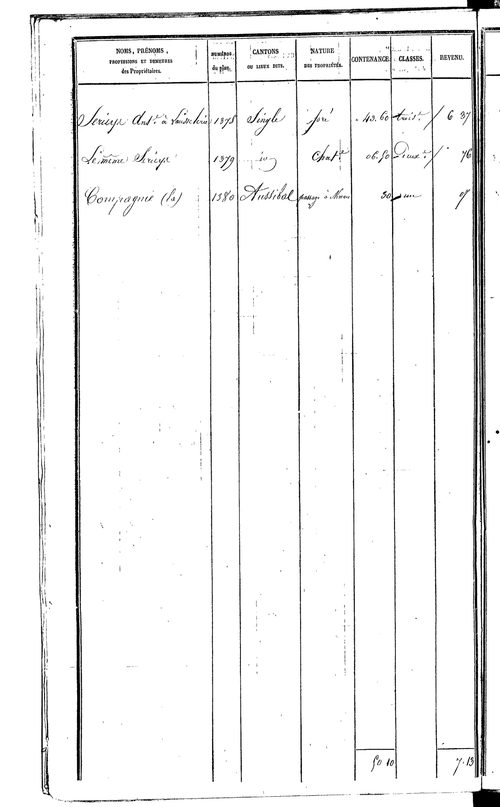 NOMS, PRÉNOMS, PROFESSIONS ET DEMEURES des Propriétaires. NUMÉROS du plan. CANTONS OU LIEUX DITS. NATURE DES PROPRIÉTÉS. CONTENANCE. CLASSES. REVENU.
Serieye Ant.e à 1378 Single pré 43.60 trois.e 6 37
Le même Serieye 1379 id Chat.e 06.50 Deux.e 76
Compagnie (la) 1380 Aussibal passage à 30 une
50 10 7.13